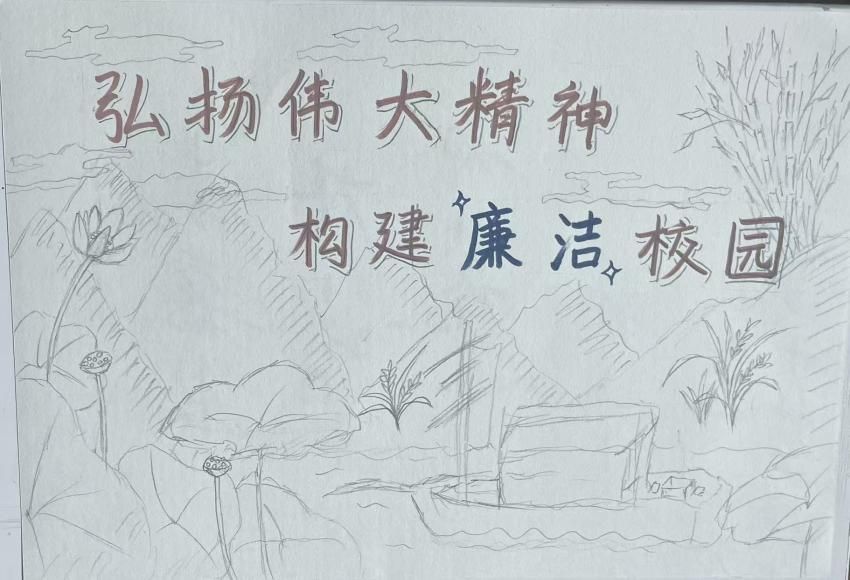 弘扬伟大精神
构建廉洁校园